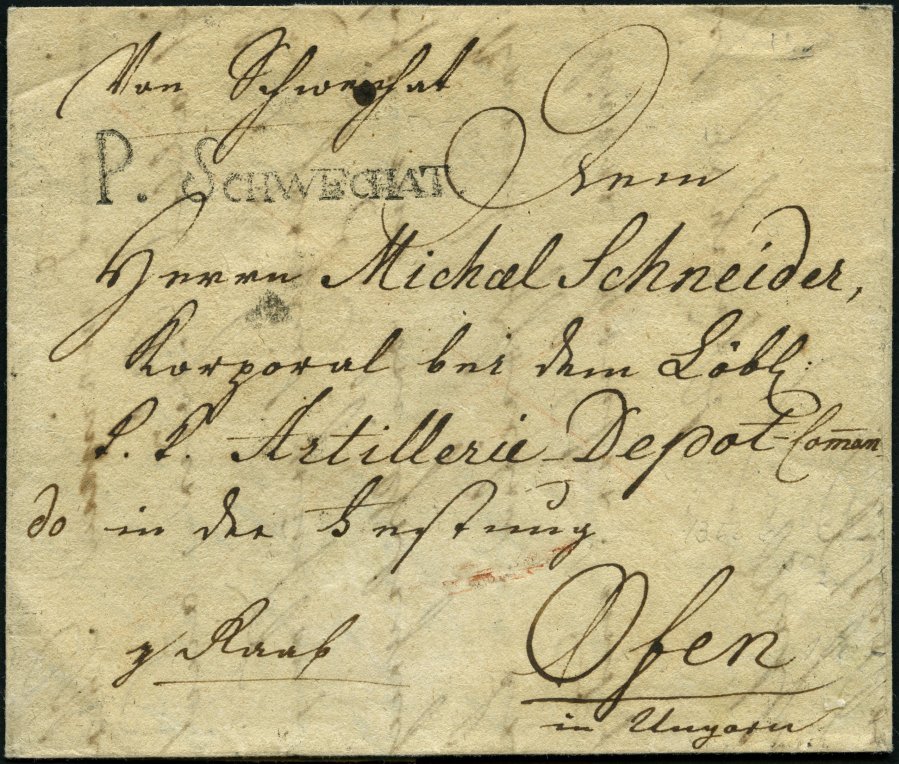 Von Schwechat
P. SCHWECHAT.
Dem
Herrn Michael Schneider,
Korporal bei dem Löbl:
k. k. Artillerie-Depot-Comman-
do in der Festung
Ofen
p Raab
in Ungarn